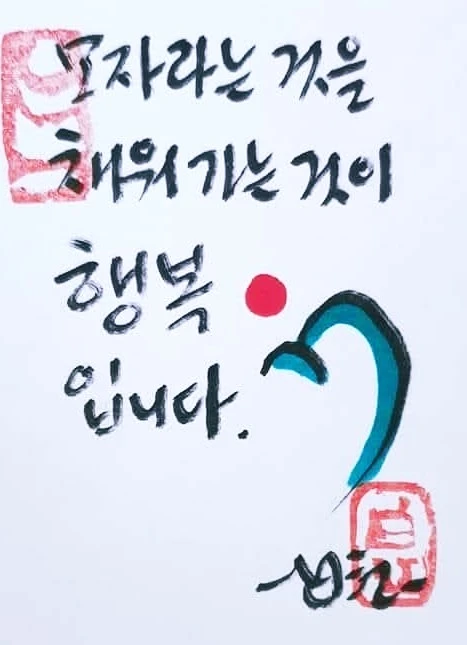 모자라는 것을
채워가는 것이
행복
입니다.